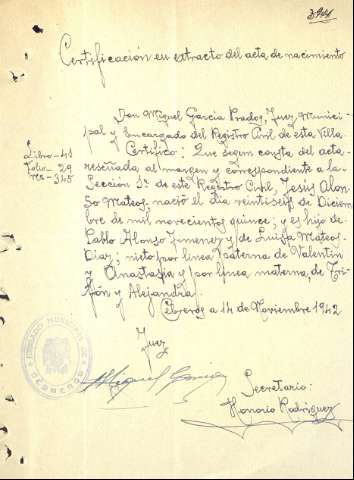 Certificación en extracto del acta de nacimiento
Don Miguel García Prados, Juez Munici-
pal y Encargado del Registro Civil de esta Villa
Certifico: Que segun consta del acta
reseñada al margen y correspondiente a la
Sección 1ª de este Registro Civil, Jesus Alon-
so Mateos nació el dia veintiseis de Diciem-
bre de mil novecientos quince; y es hijo de
Pablo Alonso Jimenez y de Luisa Mateos
Diaz; nieto por linea paterna de Valentin
y Anastasia y por linea materna, de Tri-
fón y Alejandra.
Cebreros a 14 de Noviembre 1942
Libro-41
Folio-29
Nº-345
Juez
JUZGADO MUNICIPAL DE CEBREROS
Miguel García
Secretario:
Honorio Rodriguez